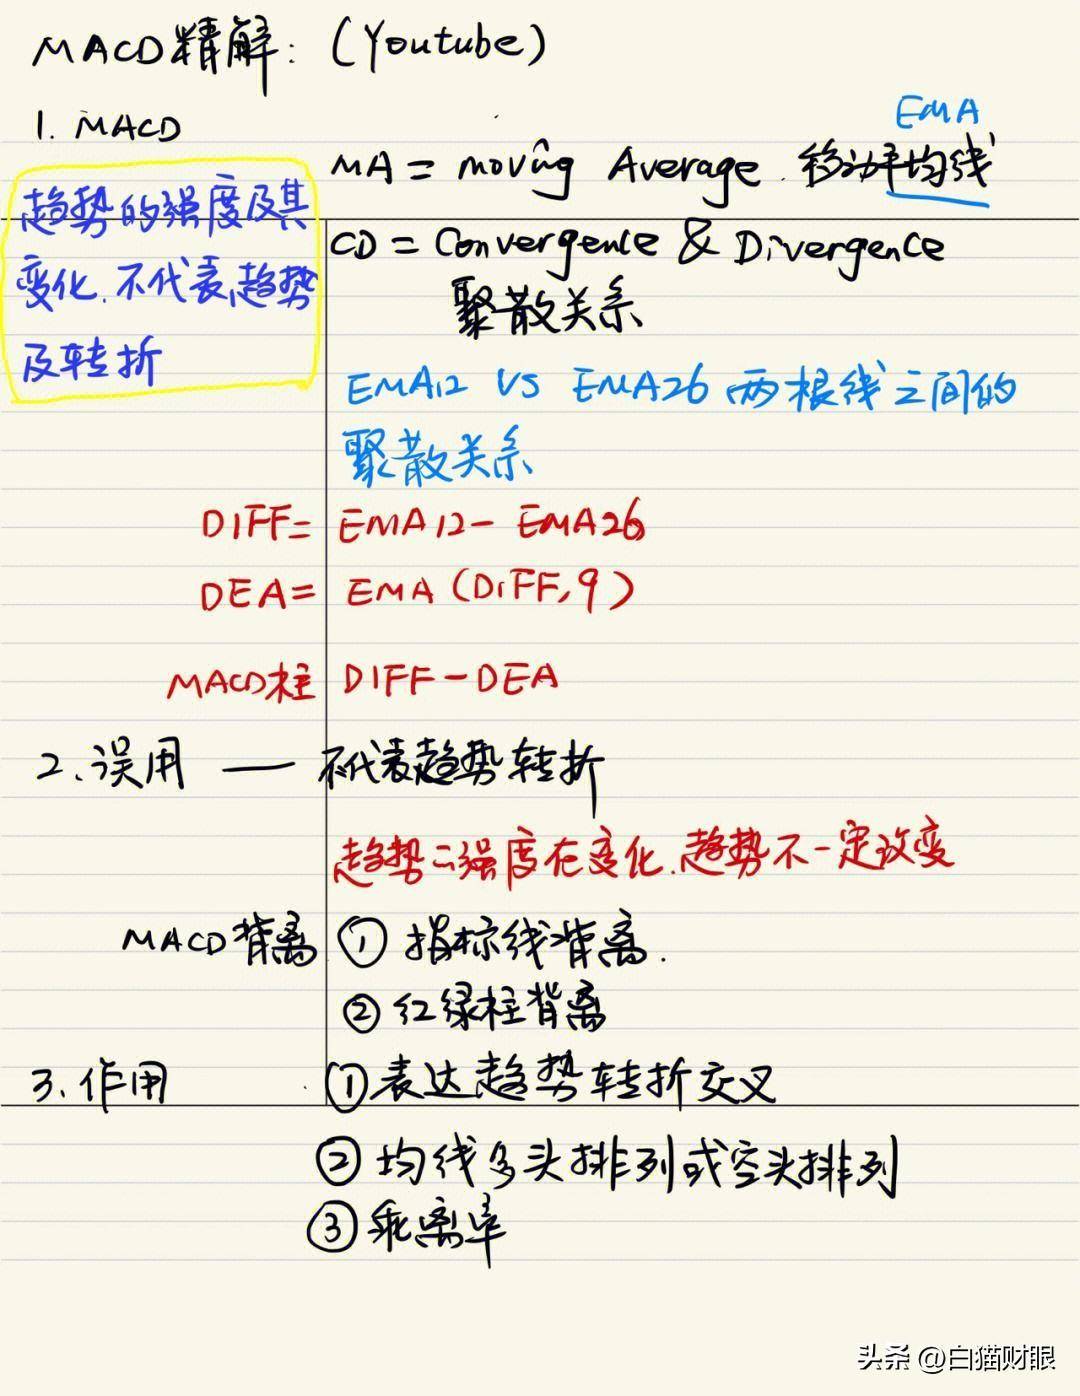 MACD精解：(Youtube)
1. MACD
EMA
MA = moving Average 移动平均线
趋势的强度及其
变化,不代表趋势
及转折
CD = Convergence & Divergence
聚散关系
EMA12 VS EMA26 两根线之间的
聚散关系
DIFF= EMA12- EMA26
DEA= EMA (DIFF,9)
MACD柱 DIFF-DEA
2、误用 —— 不代表趋势转折
趋势二强度在变化,趋势不一定改变
MACD背离 ① 指标线背离.
② 红绿柱背离
3、作用 ①表达趋势转折交叉
② 均线多头排列或空头排列
③ 乖离率
头条 @白猫财眼